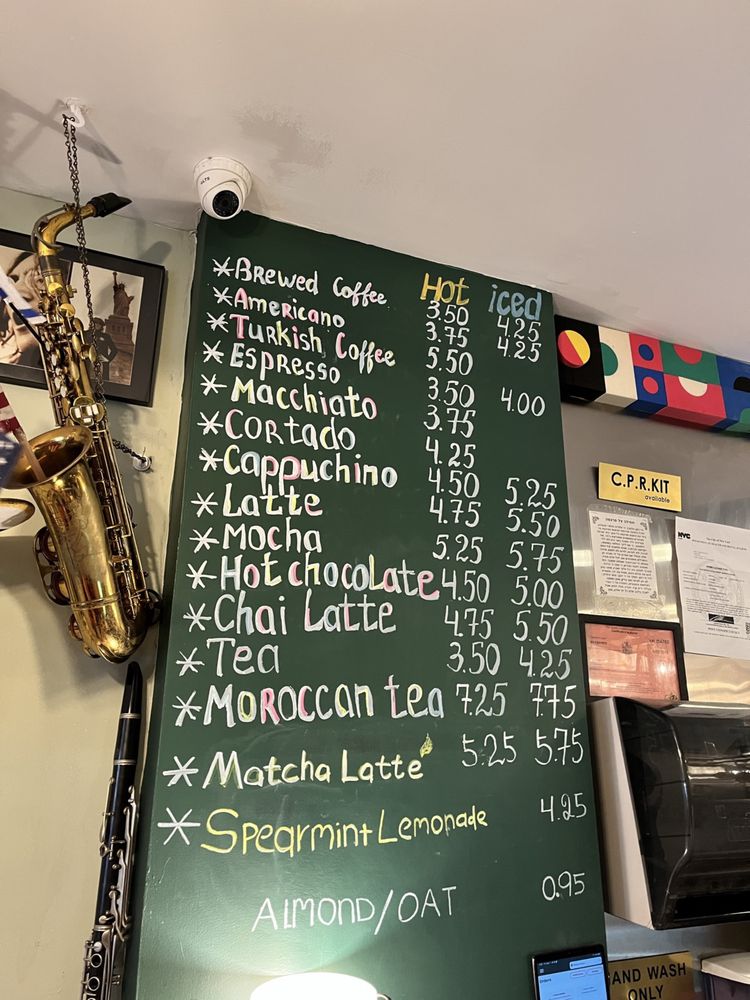 Hot iced
*Brewed Coffee 3.50 4.25
*Americano 3.75 4.25
*Turkish Coffee 5.50
*Espresso 3.50 4.00
*Macchiato 3.75
*Cortado 4.25
*Cappuchino 4.50 5.25
*Latte 4.75 5.50
*Mocha 5.25 5.75
*Hot chocolate 4.50 5.00
*Chai Latte 4.75 5.50
*Tea 3.50 4.25
*Moroccan tea 7.25 7.75
*Matcha Latte 5.25 5.75
*Spearmint Lemonade 4.25
ALMOND/OAT 0.95
C.P.R.KIT
available
NYC
HAND WASH
ONLY